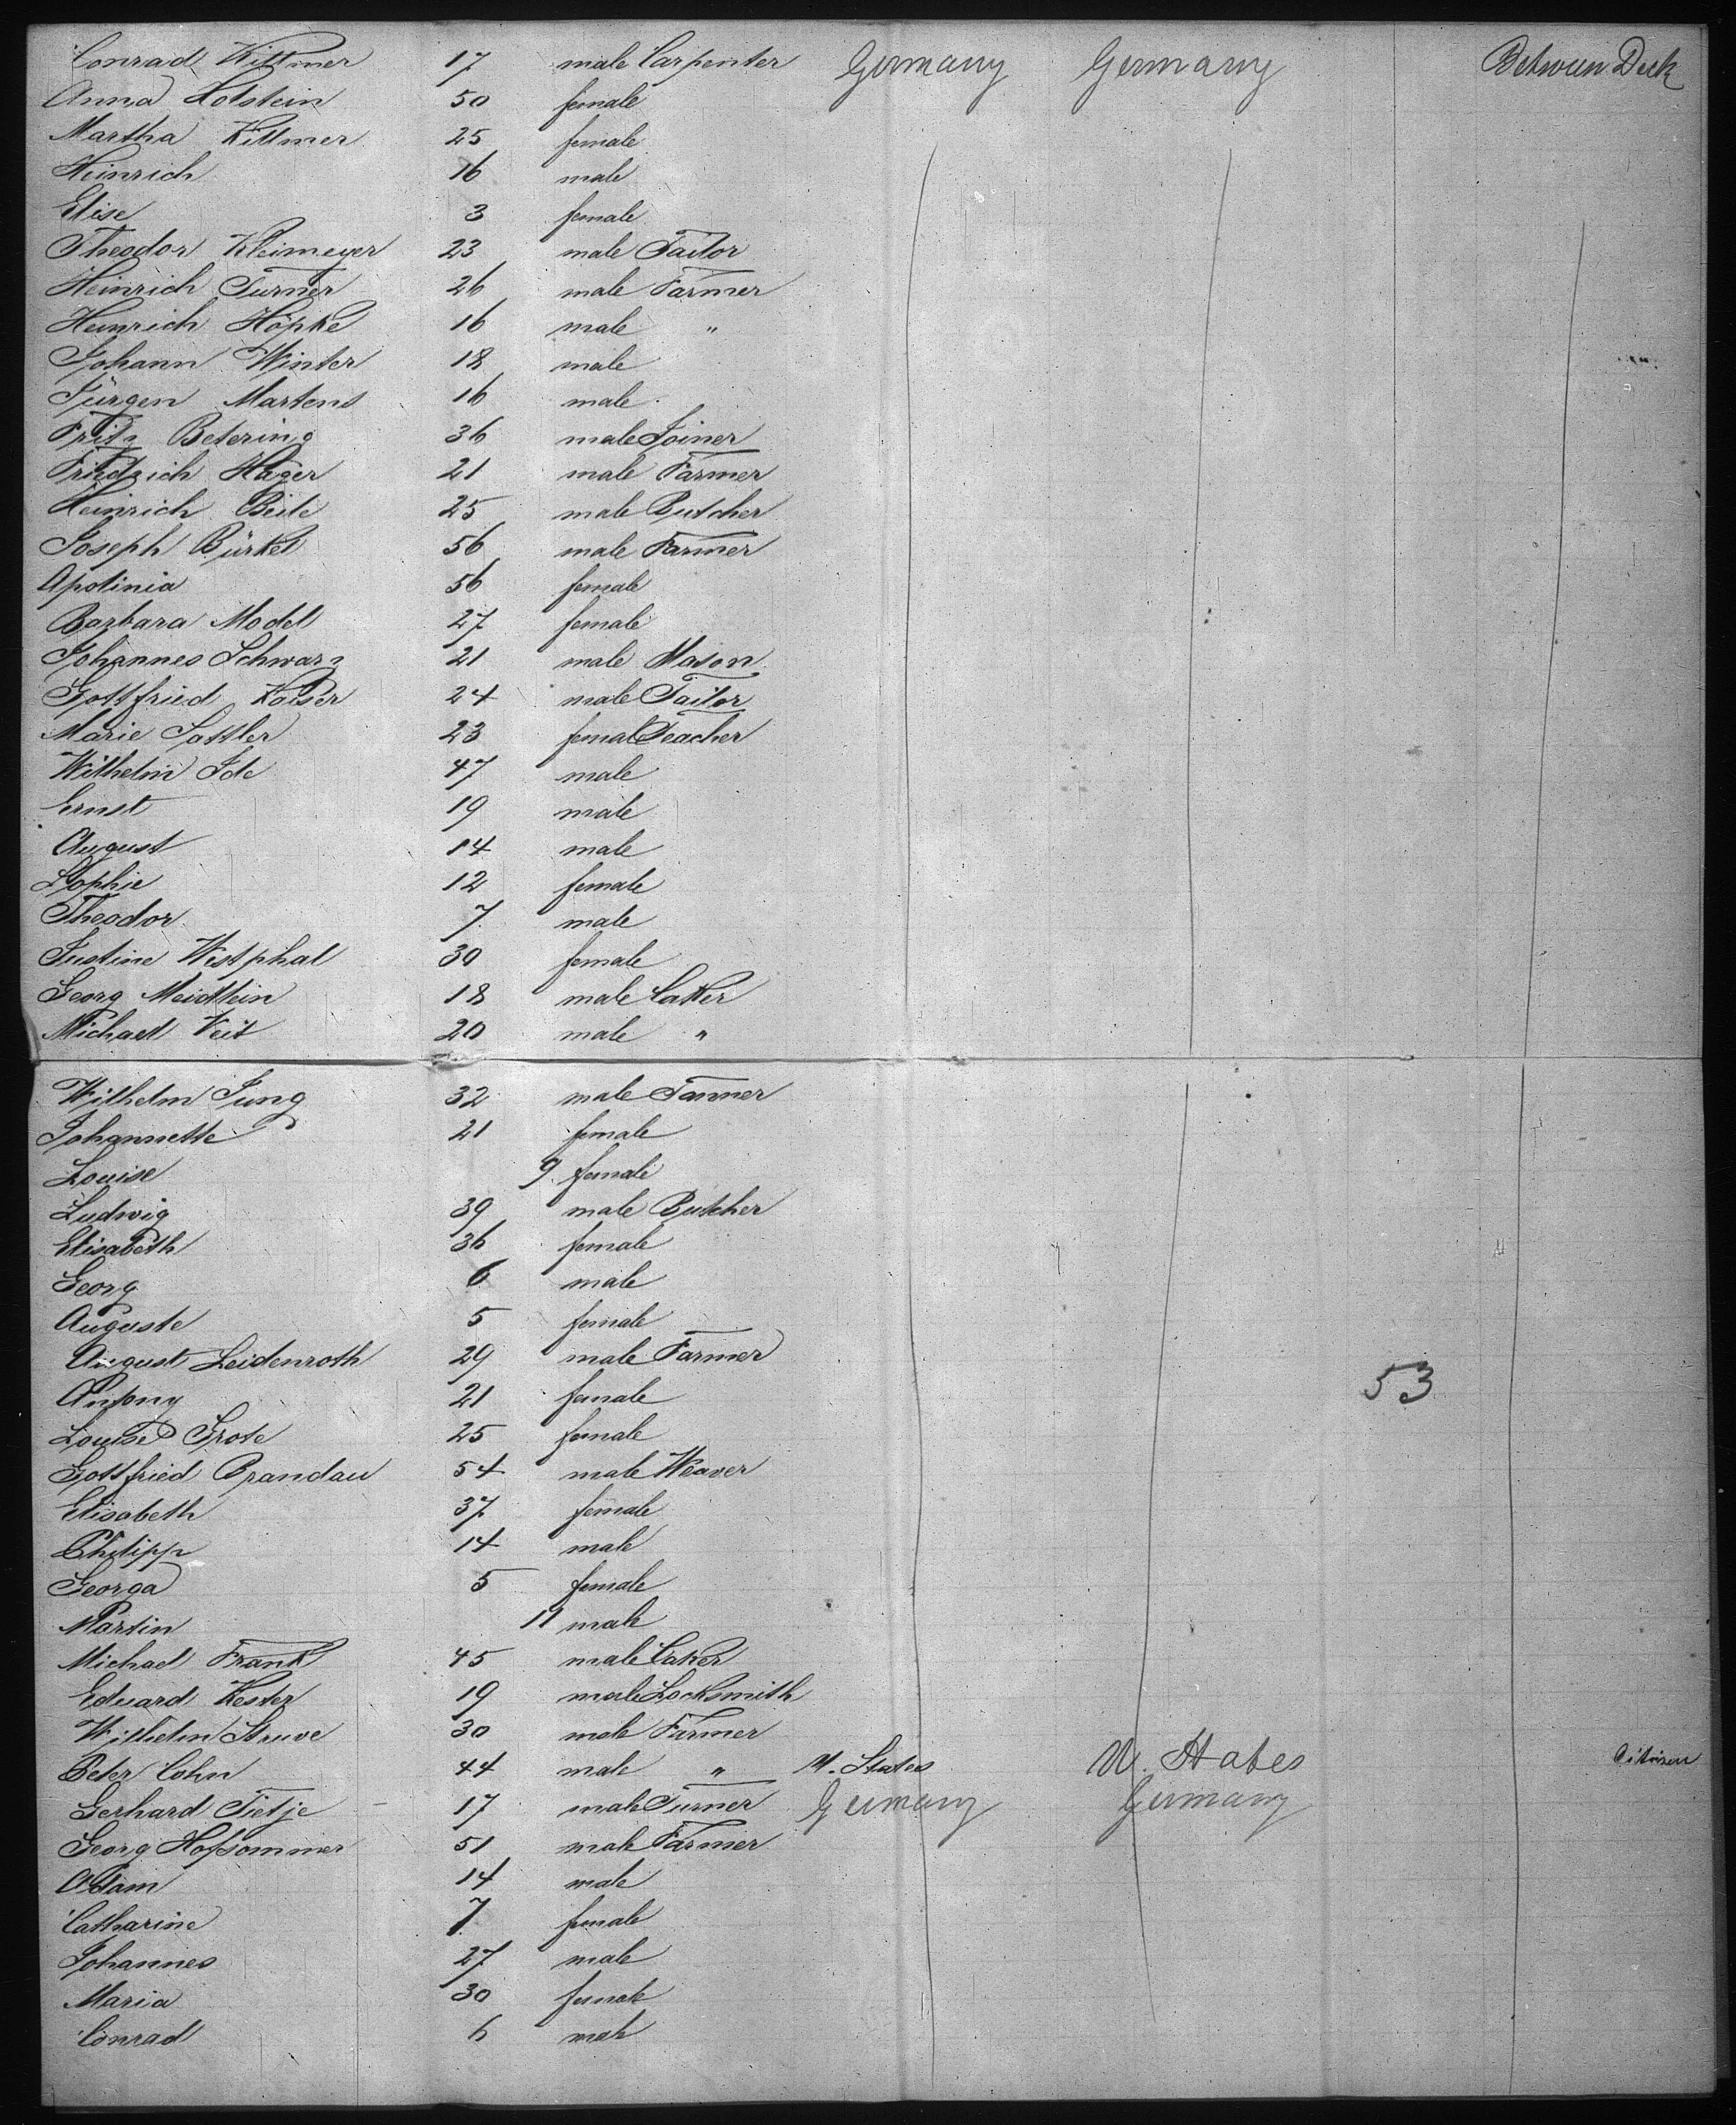 Conrad Wittmer 17 male Carpenter Germany Germany Between Deck
Anna Holstein 50 female
Martha Wittmer 25 female
Heinrich 16 male
Elise 3 female
Theodor Kleimeyer 23 male Tailor
Heinrich Turner 26 male Farmer
Heinrich Höpke 16 male "
Johann Winter 18 male
Jürgen Martens 16 male
Fritz Betering 36 male Joiner
Friedrich Häger 21 male Farmer
Heinrich Beile 25 male Butcher
Joseph Bürkel 56 male Farmer
Apolinia 56 female
Barbara Model 27 female
Johannes Schwarz 21 male Mason
Gottfried Kaiser 24 male Tailor
Marie Sattler 23 femal Teacher
Wilhelm Ide 47 male
Ernst 19 male
August 14 male
Sophie 12 female
Theodor 7 male
Justine Westphal 30 female
Georg Meidlein 18 male
Michael Veit 20 male "
Wilhelm Jung 32 male Tanner
Johannette 21 female
Louise 9 female
Ludwig 39 male Butcher
Elisabeth 36 female
Georg 6 male
Auguste 5 female
August Leidenroth 29 male Farmer
Antony 21 female 53
Louise Grote 25 female
Gottfried Brandau 54 male Weaver
Elisabeth 37 female
Philipp 14 male
Georga 5 female
Martin 11 male
Michael Frank 45 male
Eduard Kester 19 male Locksmith
Wilhelm Struve 30 male Farmer
Peter Cohn 44 male " U. States U. States Citizen
Gerhard Tietje 17 male Turner Germany Germany
Georg Hofsommer 51 male Farmer
Adam 14 male
Catharine 7 female
Johannes 27 male
Maria 30 female
Conrad 6 male